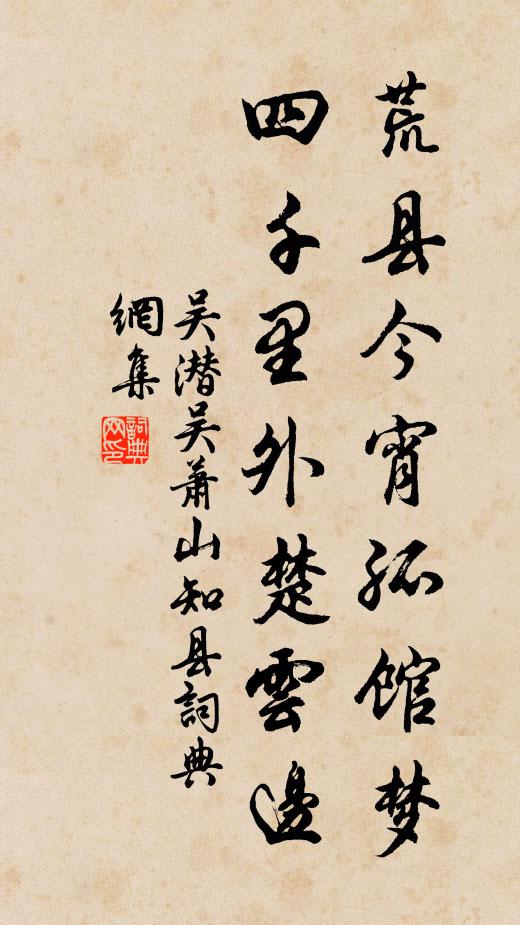 荒县今宵孤馆梦
四千里外楚雲邊
吴潜吴萧山知县詞典
網集
詞典
网印